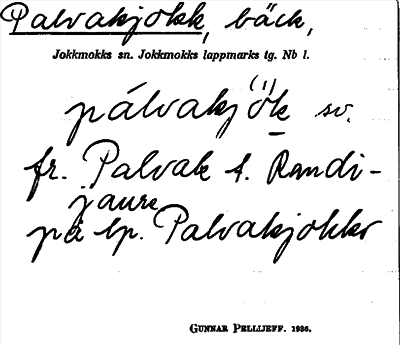 Palvakjokk, bäck,
Jokkmokks sn. Jokkmokks lappmarks tg. Nb l.
pálvakjo̱k sv.
fr. Palvak t. Randi-
jaure
på lp. Palvakjokkr
GUNNAR PELLIJEFF. 1936.